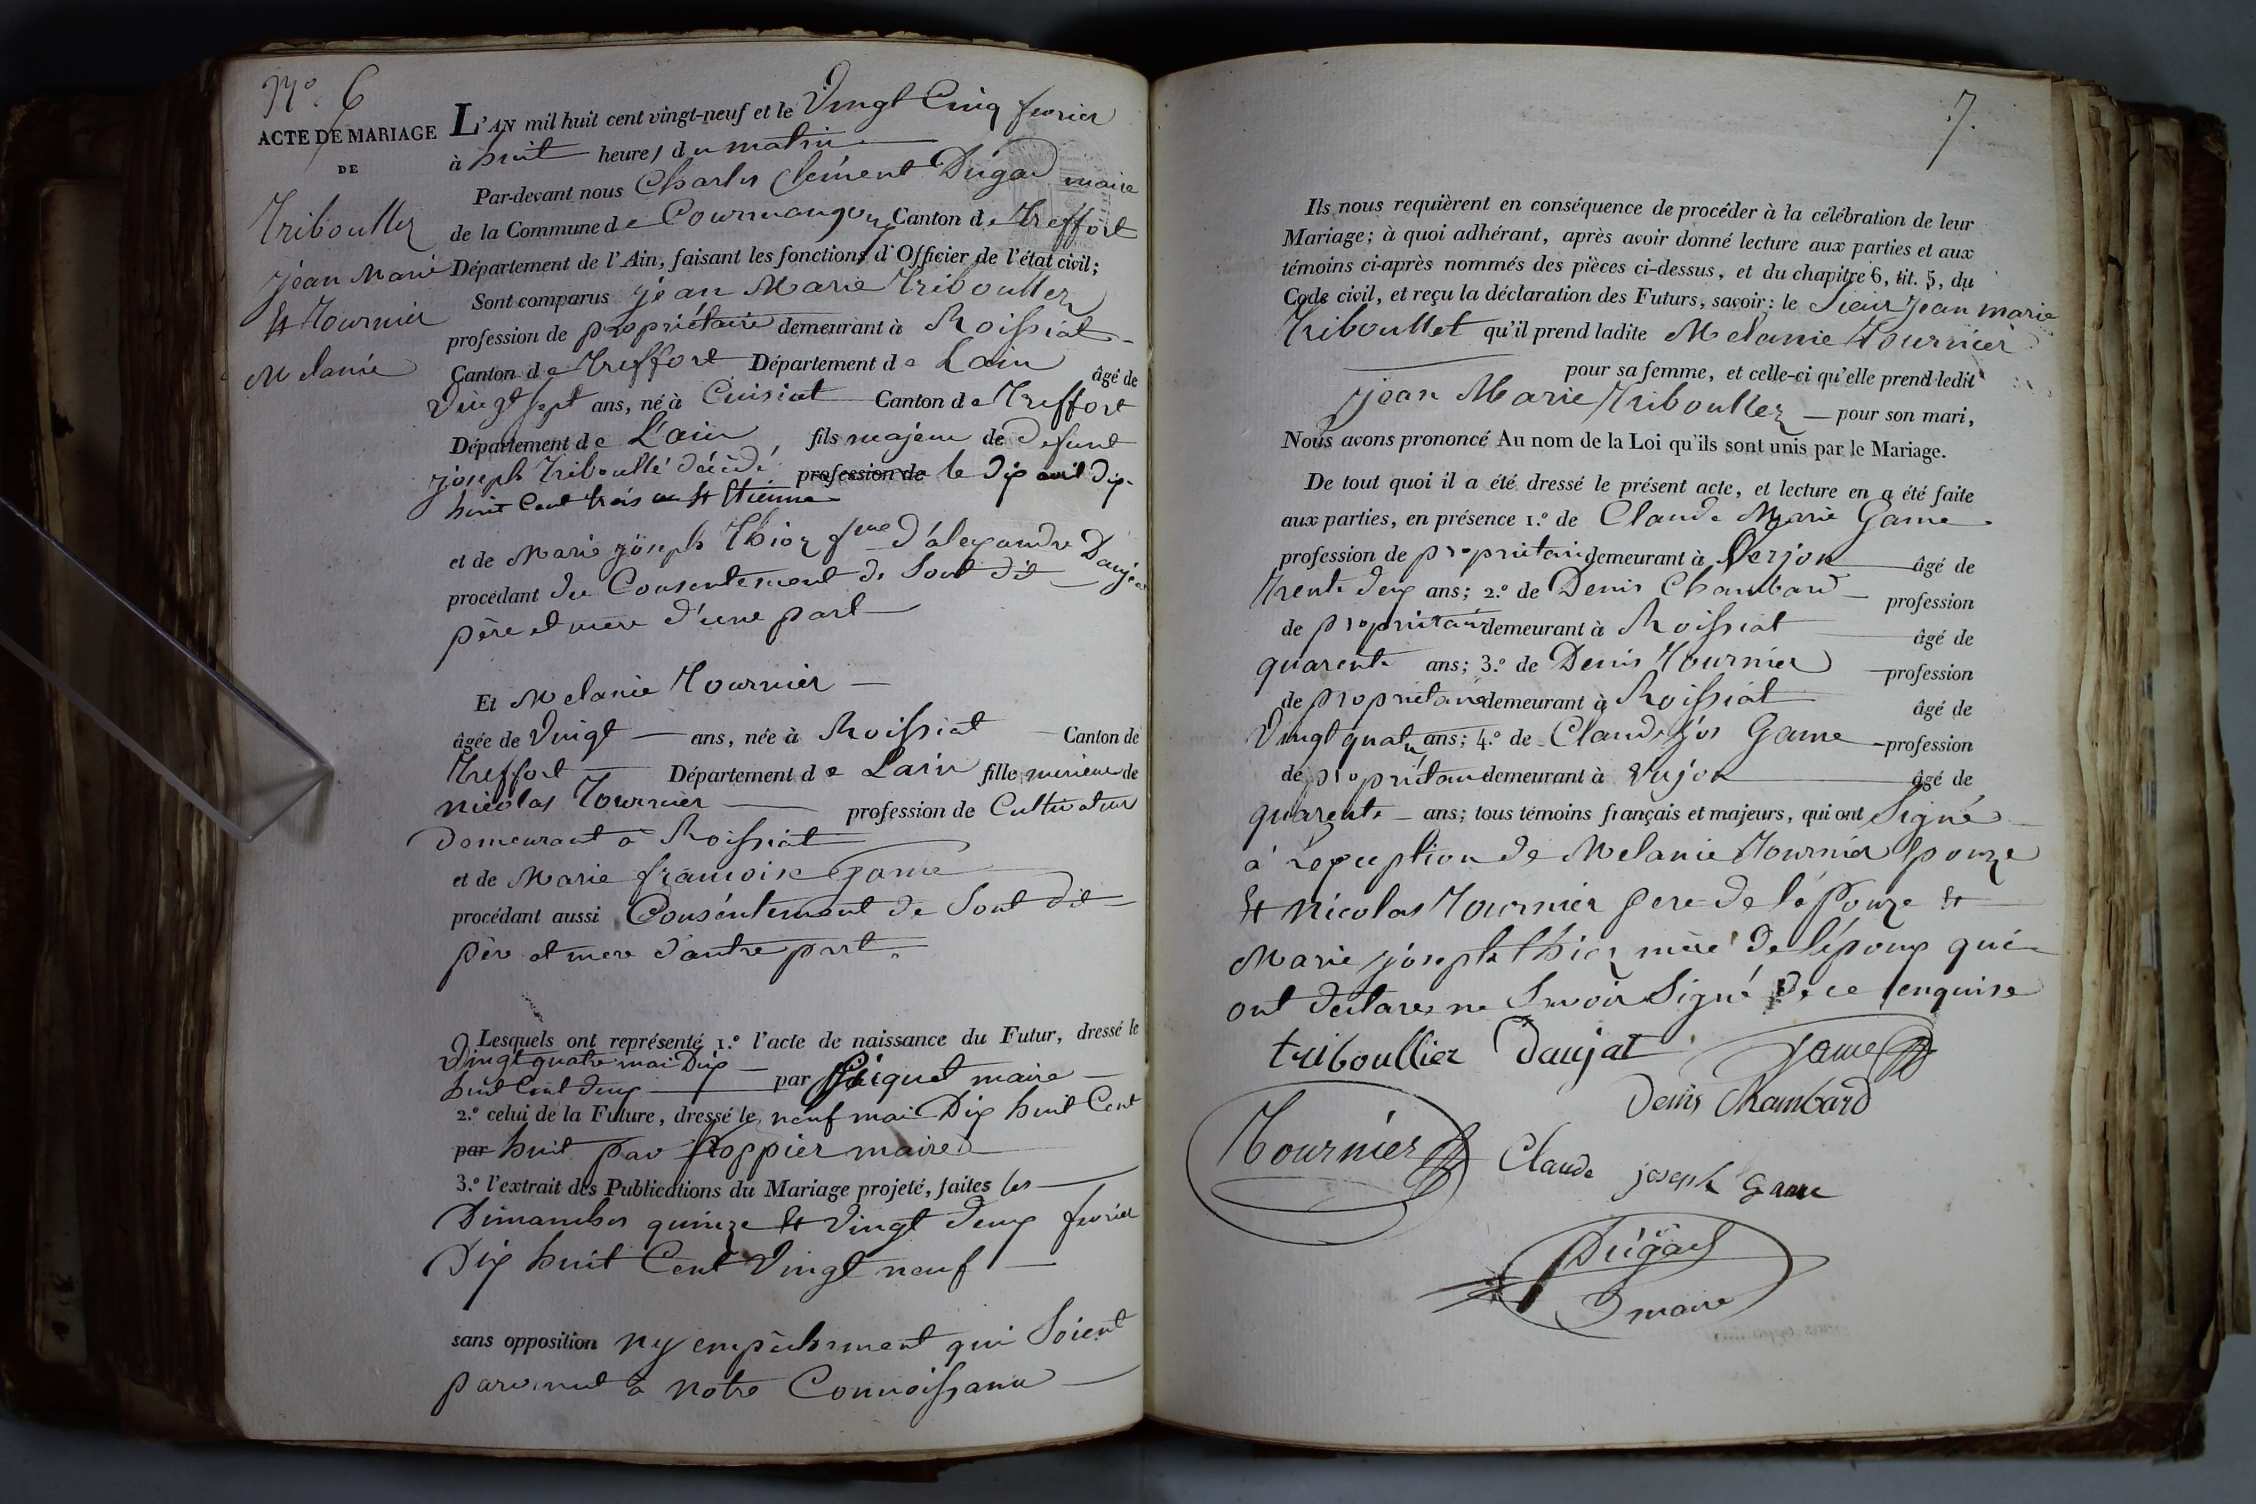 N.o 6
ACTE DE MARIAGE
DE
Triboullez
jean Marie
et Tournier
Melanie
L'AN mil huit cent vingt-neuf et le Vingt Cinq fevrier
à huit heures du matin
Par-devant nous Charles Clément Dugad maire
de la Commune de Courmangoux Canton de Treffort
Département de l'Ain, faisant les fonctions d'Officier de l'état civil;
Sont comparus jean Marie Triboullez
profession de propriétaire demeurant à Roissiat
Canton de Treffort Département de Lain âgé de
Vingt sept ans, né à Cuisiat Canton de Treffort
Département de L'ain, fils majeur de defunt
joseph Triboullé décédé profession de le dix avril dix
huit Cent trois a St Etienne
et de Marie joseph Thioz fme d'alexandre Daujat
procédant du Consentement de Sont dit
père et mere d'une part
Et Melanie Tournier
âgée de Vingt ans, née à Roissiat Canton de
Treffort Département de Lain fille mineure de
nicolas Tournier profession de Cultivateur
demeurant a Roissiat
et de Marie francoise Game
procédant aussi Consentement de Sont dit
père et mere d'autre part.
Lesquels ont représenté 1.o l'acte de naissance du Futur, dressé le
Vingt quatre mai Dix
huit Cent deux par Piquet maire
2.o celui de la Future, dressé le neuf mai Dix huit Cent
par huit par maire
3.o l'extrait des Publications du Mariage projeté, faites les
Dimanches quinze et Vingt deux fevrier
Dix huit Cent Vingt neuf
sans opposition ny empêchement qui Soient
parvenut a notre Connoissance
7.
Ils nous requièrent en conséquence de procéder à la célébration de leur
Mariage; à quoi adhérant, après avoir donné lecture aux parties et aux
témoins ci-après nommés des pièces ci-dessus, et du chapitre 6, tit. 5, du
Code civil, et reçu la déclaration des Futurs, savoir: le Sieur jean marie
Triboullet qu'il prend ladite Melanie Tournier
pour sa femme, et celle-ci qu'elle prend ledit
jean Marie Triboullez pour son mari,
Nous avons prononcé Au nom de la Loi qu'ils sont unis par le Mariage.
De tout quoi il a été dressé le présent acte, et lecture en a été faite
aux parties, en présence 1.o de Claude Marie Game
profession de propriétaire demeurant à Verjon âgé de
Trente deux ans; 2.o de Denis Chambard profession
de propriétaire demeurant à Roissiat âgé de
quarente ans; 3.o de Denis Tournier profession
de propriétaire demeurant à Roissiat âgé de
Vingt quatre ans; 4.o de Claude jos Game profession
de propriétaire demeurant à Verjon âgé de
quarente ans; tous témoins français et majeurs, qui ont Signé
a l'exception de Melanie Tournier Epouze
et nicolas Tournier pere de l'épouze et
Marie joseph thioz mère de l'époux qui
ont declarer ne Savoir Signé de ce enquise
triboullier Daujat Game
Denis Chambard
Tournier Claude joseph Game
Dugad
maire